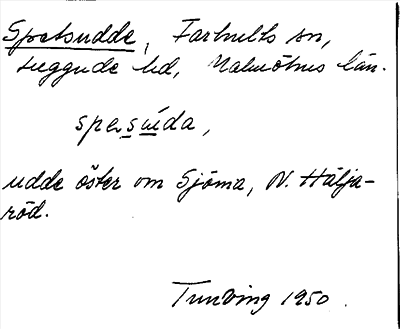 Spetsudde, Farhults sn,
Luggude hd, Malmöhus län.
spesu̇da,
udde öster om Sjöma, N. Hälja-
röd.
Tunving 1950.